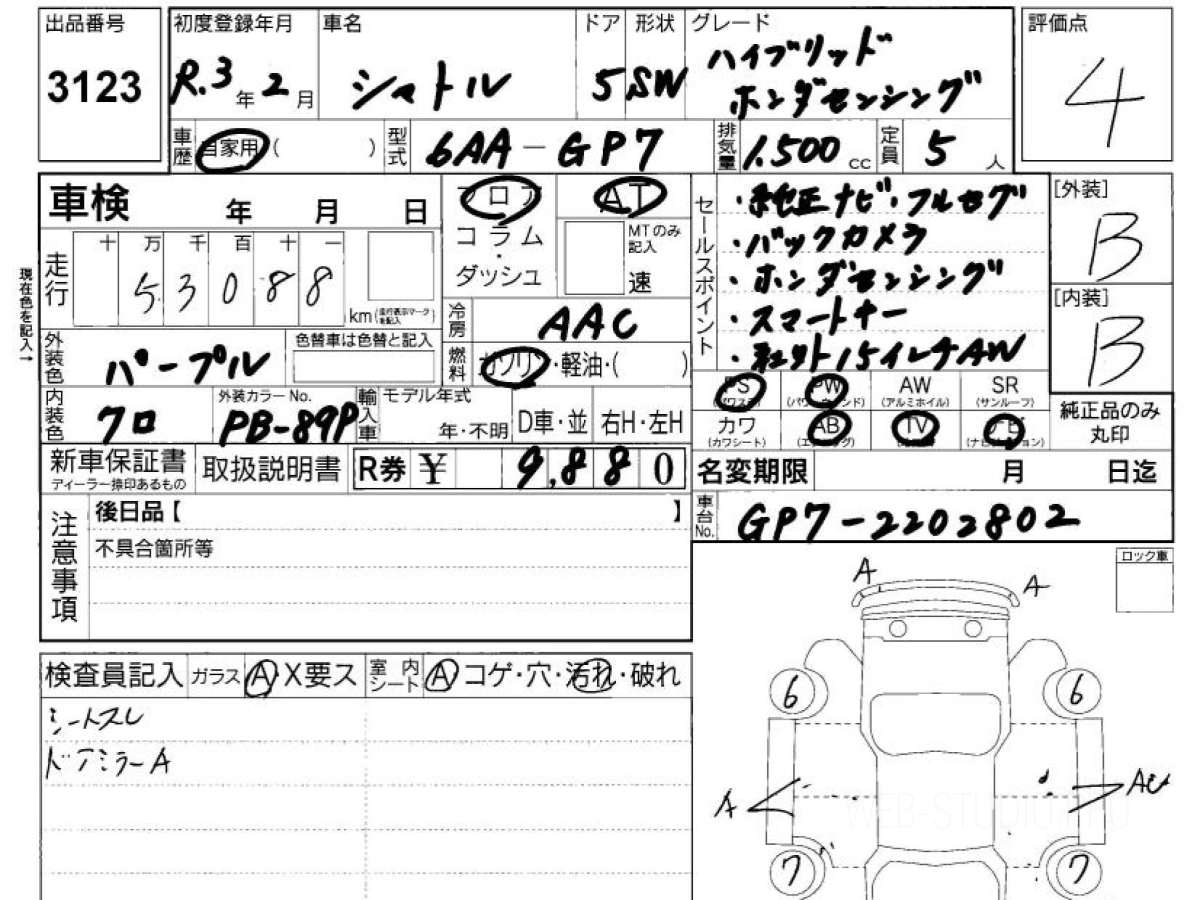 出品番号
3123
初度登録年月
R.3年2月
車名
シャトル
ドア
5
形状
SW
グレード
ハイブリッド
ホンダセンシング
評価点
4
車歴
自家用 ( )
型式
6AA-GP7
排気量
1.500 cc
定員
5人
車検 年 月 日
フロア
コラム
・
ダッシュ
AT
MTのみ
記入
速
セールスポイント
・純正ナビ・フルセグ
・バックカメラ
・ホンダセンシング
・スマートキー
・社外15インチAW
[外装]
B
[内装]
B
現在色を記入→
走行
十 万 千 百 十 一
5 3 0 8 8
km (走行表示マークを記入)
冷房
AAC
外装色
パープル
色替車は色替と記入
燃料
ガソリン・軽油・( )
内装色
クロ
外装カラーNo.
PB-89P
輸入車
モデル年式
年・不明
D車・並
右H・左H
PS
(パワステ)
PW
(パワーウィンド)
AW
(アルミホイル)
SR
(サンルーフ)
カワ
(カワシート)
AB
(エアバッグ)
TV
ナビ
(ナビゲーション)
純正品のみ
丸印
新車保証書
ディーラー捺印あるもの
取扱説明書
R券 ¥ 9,880
名変期限 月 日迄
車台No.
GP7-2202802
注意事項
後日品【 】
不具合箇所等
ロック車
A
A
6
6
A
AU
7
7
検査員記入
ガラス A X要ス
室内シート A コゲ・穴・汚れ・破れ
シートスレ
ドアミラーA
WEB-STUDIO.PRO